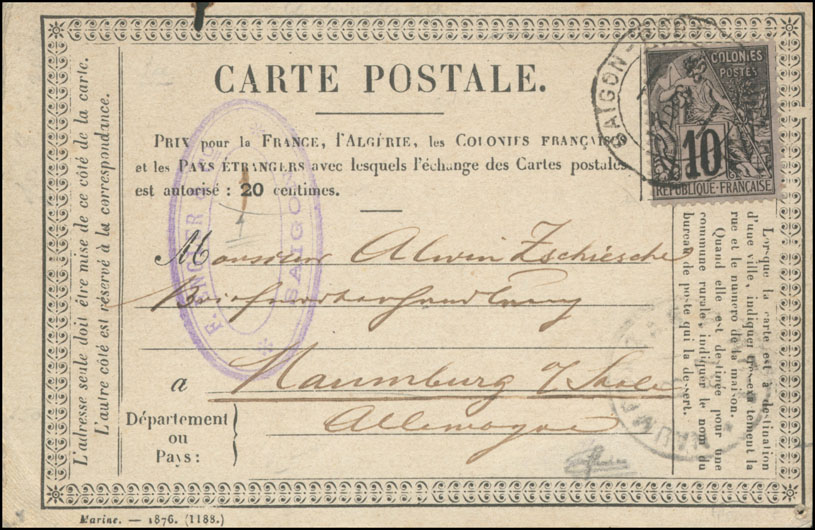 CARTE POSTALE.
PRIX pour la FRANCE, l'ALGÉRIE, les COLONIES FRANÇAISES
et les PAYS ÉTRANGERS avec lesquels l'échange des Cartes postales
est autorisé : 20 centimes.
Monsieur Alwin Zschiesche
Briefmarkenhandlung
a Naumburg a/Saale
Allemagne
Département
ou
Pays :
L'adresse seule doit être mise de ce côté de la carte.
L'autre côté est réservé à la correspondance.
Lorsque la carte est à destination
d'une ville, indiquer très exactement la
rue et le numéro de la maison.
Quand elle est destinée pour une
commune rurale, indiquer le nom du
bureau de poste qui la dessert.
COLONIES
POSTES
10
RÉPUBLIQUE FRANÇAISE
SAIGON
SAIGON
NAUMBURG
Marine. — 1876. (1188.)